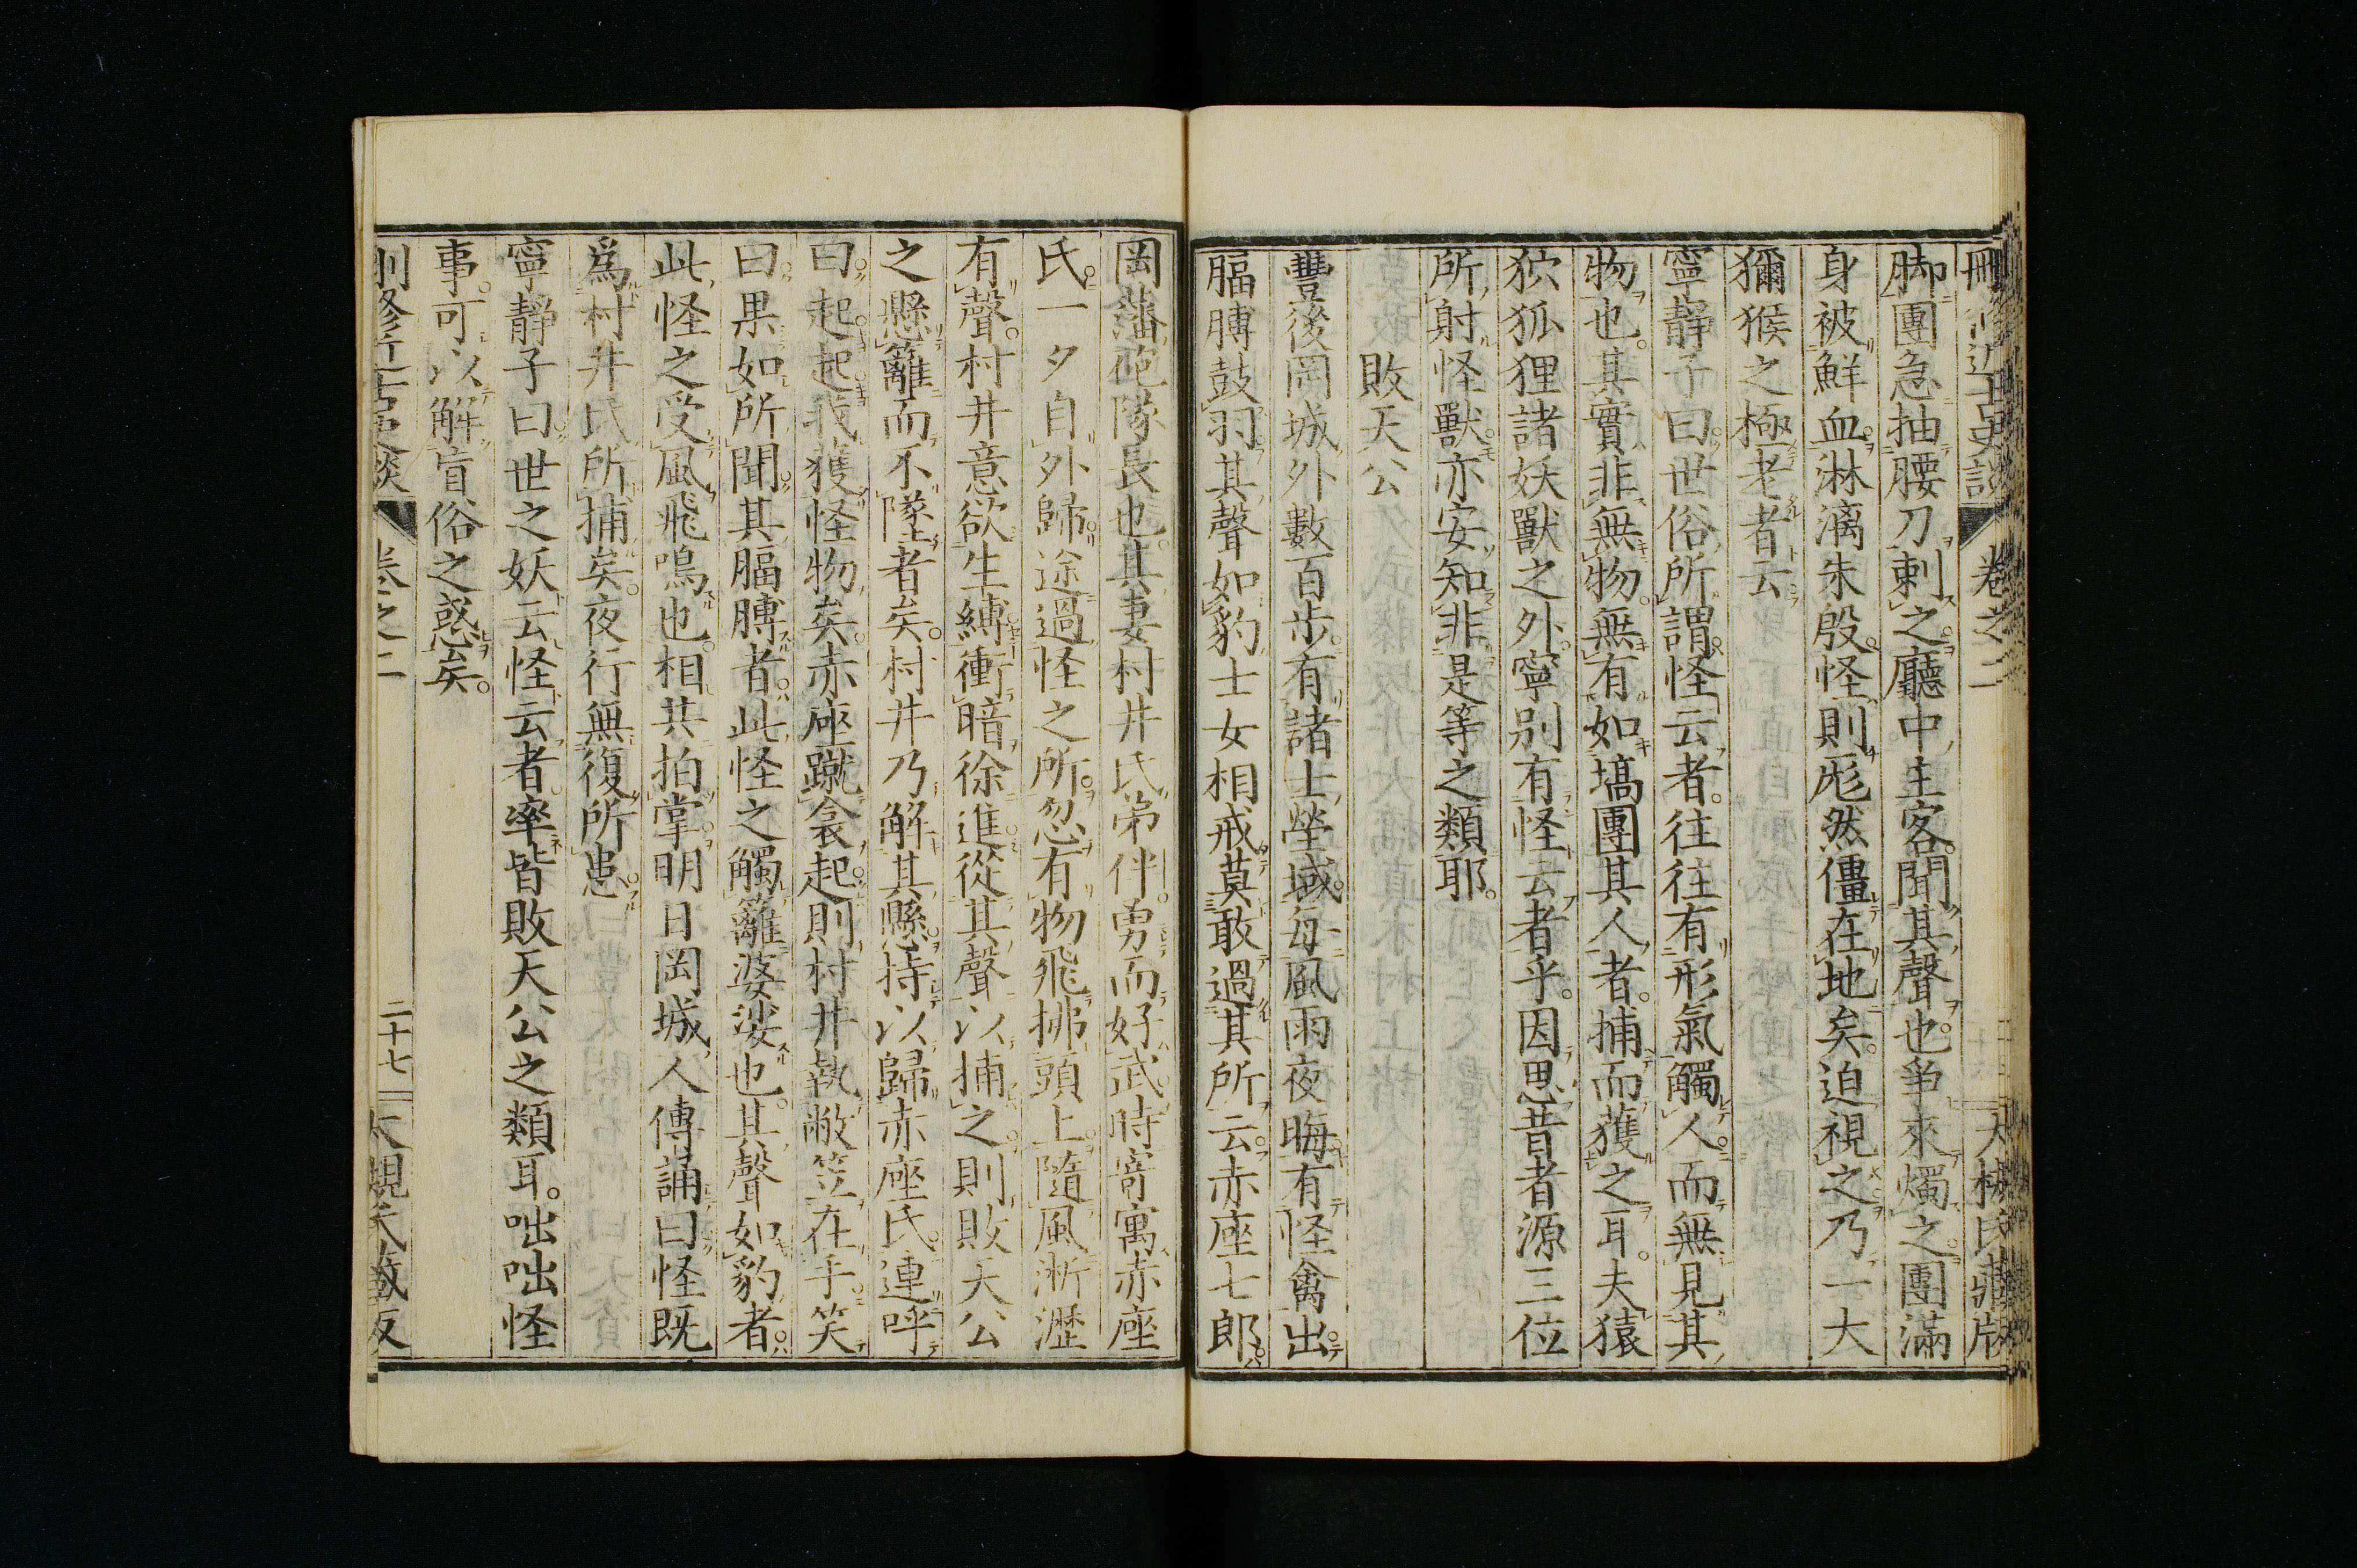 刪修近古史談 卷之二 大槻氏藏版
脚團急抽腰刀刺之廳中主客聞其聲也爭來燭之團滿
身被鮮血淋漓朱殷怪則尨然僵在地矣迫視之乃一大
獼猴之極老者云
寧靜子曰世俗所謂怪云者往往有形氣觸人而無見其
物也其實非無物無有如塙團其人者捕而獲之耳夫猿
狖狐狸諸妖獸之外寧別有怪云者乎因思昔者源三位
所射怪獸亦安知非是等之類耶
敗天公
豐後岡城外數百步有諸士塋域每風雨夜晦有怪禽出
腷膊鼓羽其聲如豹士女相戒莫敢過其所云赤座七郎
岡藩砲隊長也其妻村井氏弟伴勇而好武時寄寓赤座
氏一夕自外歸途過怪之所忽有物飛拂頭上隨風淅瀝
有聲村井意欲生縛衝暗徐進從其聲以捕之則敗天公
之懸籬而不墜者矣村井乃解其懸持以歸赤座氏連呼
曰起起我獲怪物矣赤座蹴衾起則村井執敝笠在手笑
曰果如所聞其腷膊者此怪之觸籬婆娑也其聲如豹者
此怪之受風飛鳴也相共拍掌明日岡城人傳誦曰怪既
為村井氏所捕矣夜行無復所患
寧靜子曰世之妖云怪云者率皆敗天公之類耳咄咄怪
事可以解盲俗之惑矣
刪修近古史談 卷之二 二十七 大槻氏藏版